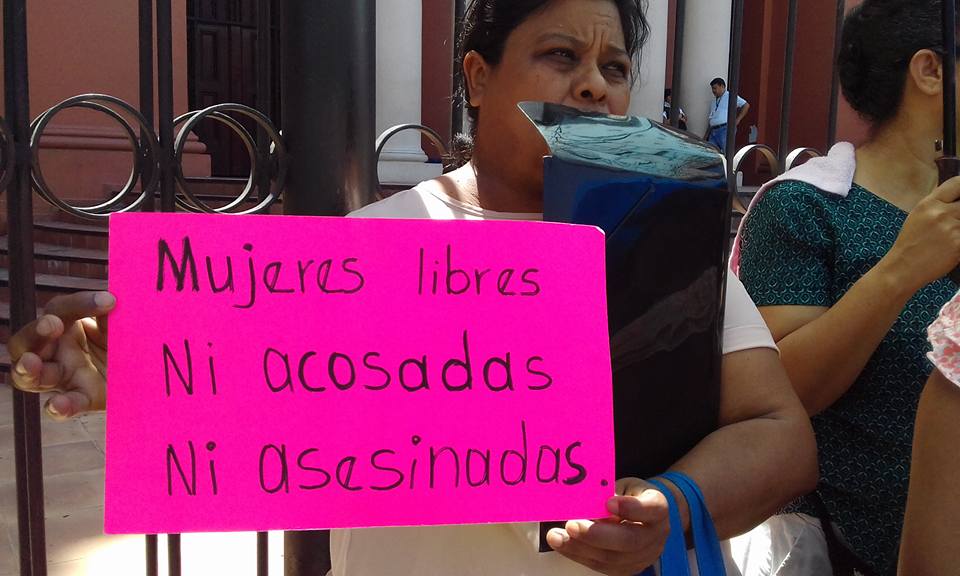 Mujeres libres
Ni acosadas
Ni asesinadas.